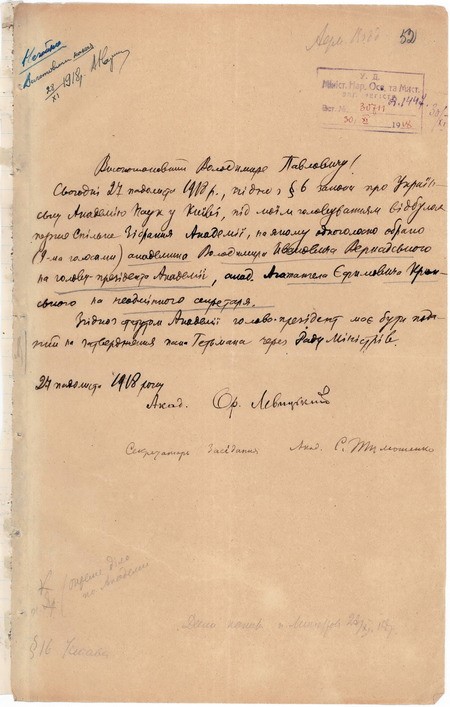 Негайно
28/XI 1918 р.
52
У. Д.
Мініст. Нар. Осв. та Мист.
Вст. №
30 XI 1918
Високоповажний Володимире Павловичу!
Сьогодні 27 падолиста 1918 р., згідно з § 6 закону про Україн-
ську Академію Наук у Київі, під моїм головуванням відбулося
перше Спільне Зібрання Академії, на якому одноголосно обрано
(9-ма голосами) академика Володимира Ивановича Вернадського
на голову-президента Академії, акад. Агатангела Єфимовича Крим-
ського на неодмінного секретаря.
Згідно статутом Академії голова-президент має бути пода-
ний на затвердження пана Гетьмана через Раду Міністрів.
27 падолиста 1918 року
Акад. Ор. Левицький
Секретарь Засідання Акад. С. Тимошенко
окреме діло
по Академії
§ 16